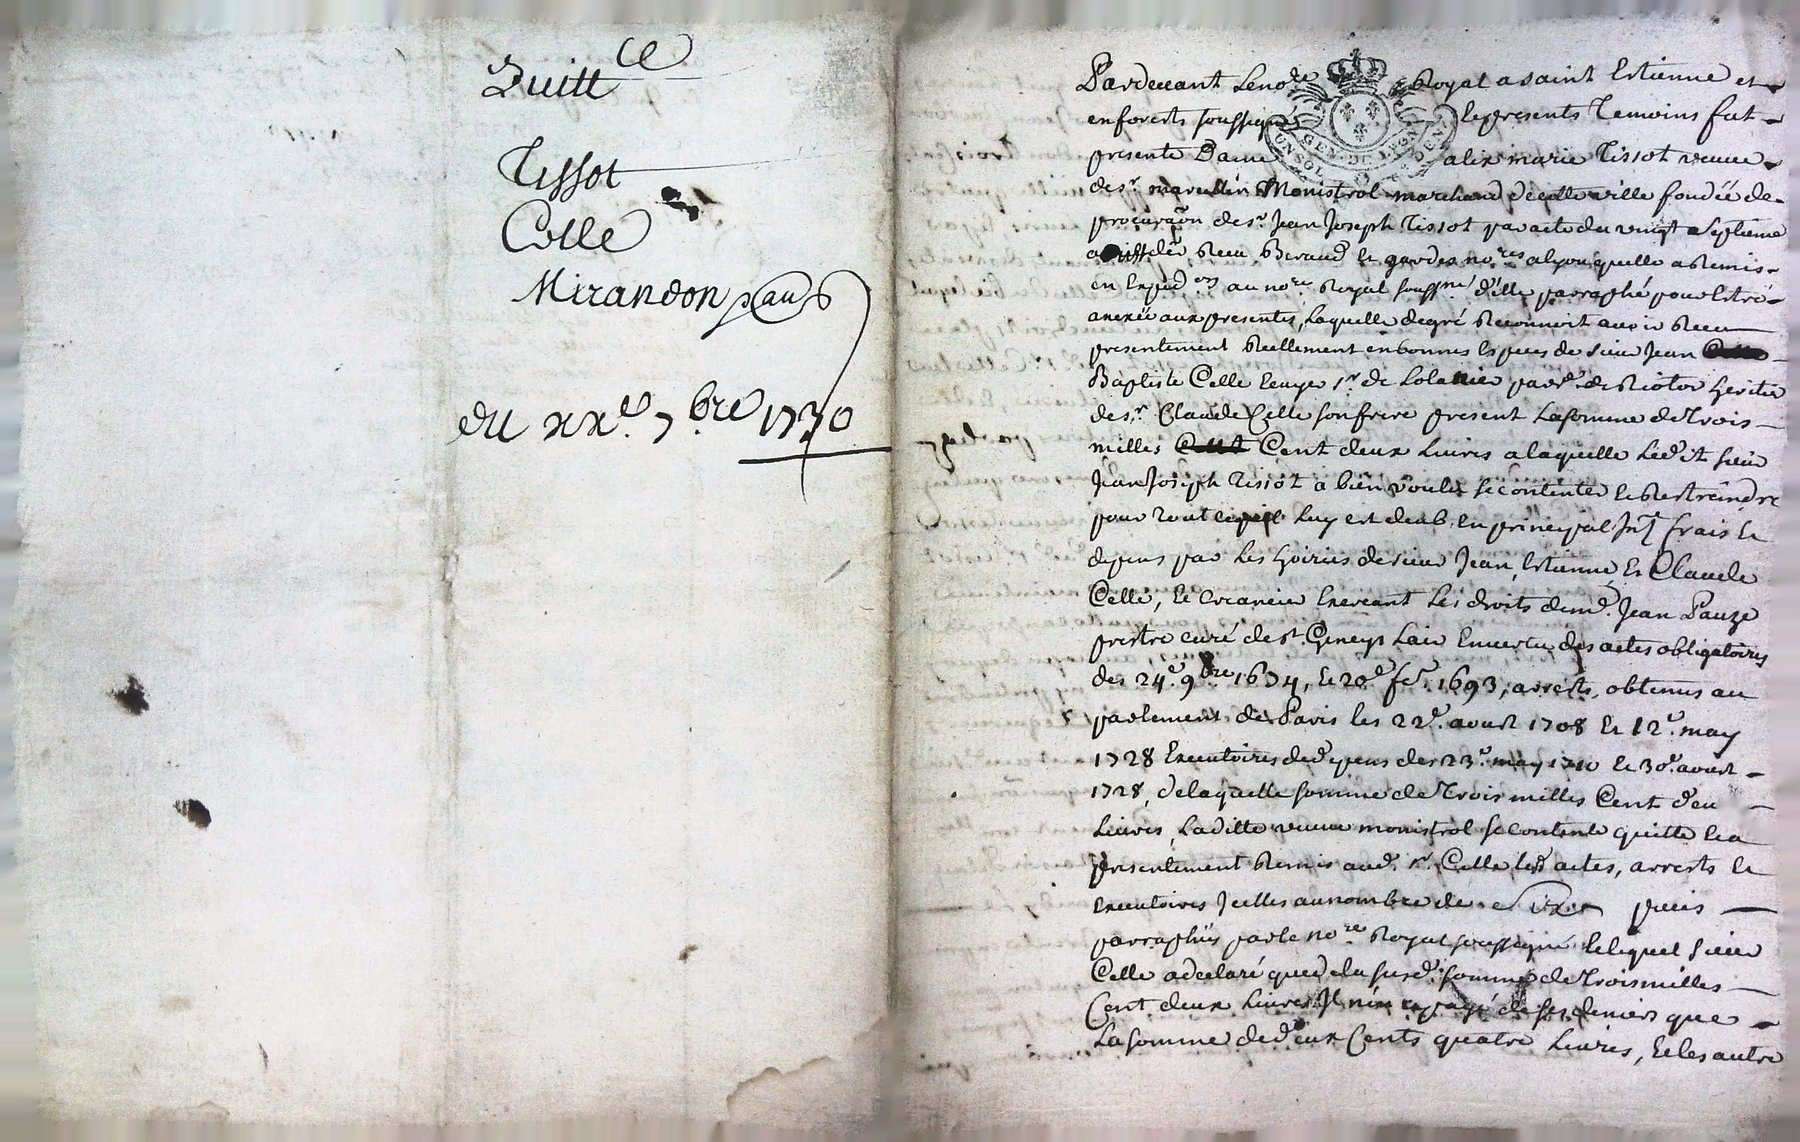 Quitt ce
Tissot
Celle
Mirandon
du xxe. 7 bre 1730
Pardevant Le no re Royal a saint Estienne et
en forests soussigné Les presents Temoins fut
presente Dame alix marie Tissot veuve
de sr. marcellin Monistrol marchand de cette ville fondée de
procuraõn de sr. Jean Joseph Tissot par acte du vingt septieme
Receu Beraud et gardes no res a lyon quelle a Remis
en Exped on au no re Royal soussigné d'elle parraphé pour Estre
anexée aux presentes, Laquelle de gré Reconnoit avoir Receu
presentement Reellement en bonnes Especes de sieur Jean
Baptiste Celle Ecuyer sr. de par de Riotor heritier
de sr. Claude Celle son frere present La somme de Trois
milles Cent deux Livres a laquelle Ledit sieur
Jean Joseph Tissot a bien voulu se contenter et Restreindre
pour Tout ce qu'il Luy est deub En principal Intt frais Et
depens par Les hoiries de sieur Jean, Estienne, Et Claude
Celle, Et creancier Exercant Les droits de md. Jean Pauze
prestre curé de st. Geneys Lair En vertu des actes obligatoires
des 24e. 9bre 1674, Et 20e fer. 1693, arrests, obtenus au
parlement de Paris les 22e. aoust 1708 Et 12e. may
1728 Executoires de depens des 23e. may 1710 Et 30e. aoust
1728, de laquelle somme de Trois milles Cent deu
Livres, Laditte veuve monistrol se contente quitte Et a
presentement Remis aud. sr. Celle lesd actes, arrests Et
Executoires Icelles au nombre de pieces
parraphés par le no re Royal soussigné Lequel sieur
Celle a declaré que de la susd. somme de Trois milles
Cent deux Livres Il n'en a payé de ses deniers que
La somme de deux Cents quatre Livres, Et les autre